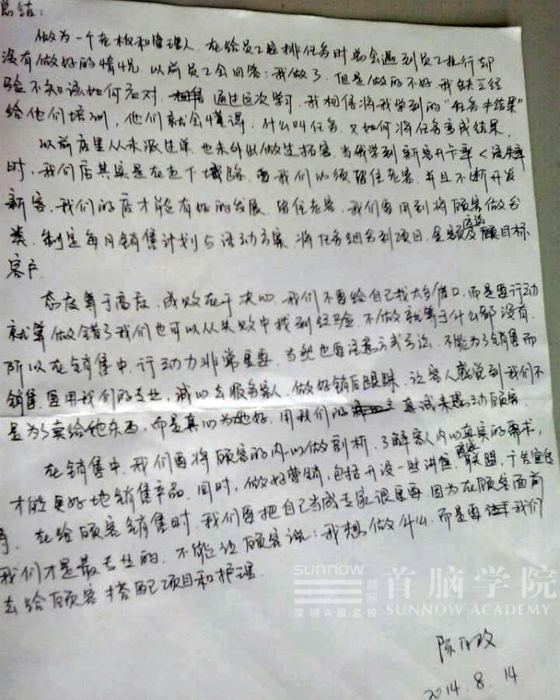 总结:
做为一个老板和管理人,在给员工安排任务时总会遇到员工推行却
没有做好的情况,以前员工会回答:我做了,但是做的不好,我缺乏经
验不知该如何应对,通过这次学习,我相信将我学到的"任务≠结果"
给他们培训,他们就会懂得,什么叫任务,又如何将任务变成结果。
以前店里从未派过单,也未外出做过拓客,当我学到新客开卡率<流失率
时,我们店其实是在走下坡路,而我们必须留住老客,并且不断开发
新客,我们的店才能有好的发展,留住老客,我们要用到将顾客做分
类,制定每月销售计划与活动方案,将任务细分到项目,金额及目标
客户
态度等于高度,成败在于决心,我们不要给自己找太多借口,而是要行动
就算做错了我们也可以从失败中找到经验,不做就等于什么都没有,
所以在销售中,行动力非常重要,当然也要注意方式方法,不能为了销售而
销售,要用我们的专业,诚心去服务客人,做好销后跟踪,让客人感觉到我们不
是为了卖给他东西,而是真心为她好,用我们的真诚来感动顾客,
在销售中,我们要将顾客的内心做剖析,了解客人内心真实的需求,
才能更好地销售产品,同时,做好营销,包括开设一些讲座,联盟,广告宣传
等,在给顾客销售时,我们要把自己当成专家很重要,因为在顾客面前
我们才是最专业的,不能让顾客说:我想做什么,而是要我们
去给顾客搭配项目和护理.
sunnow
首脑学院
SUNNOW ACADEMY
2014.8.14